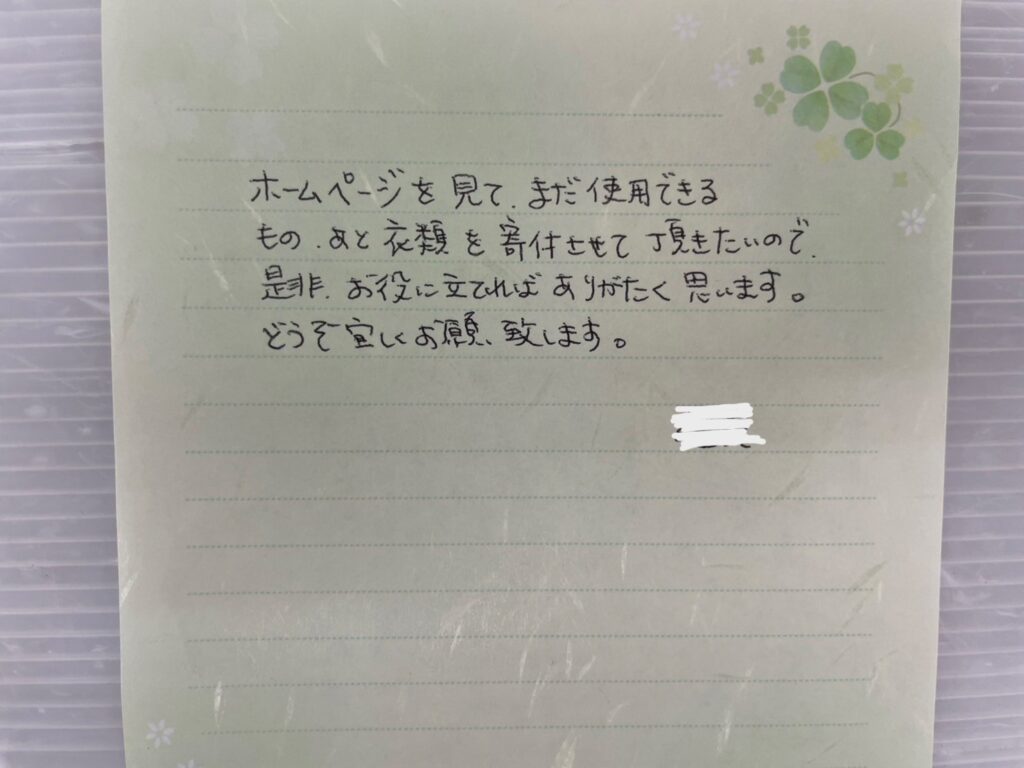 ホームページを見て、まだ使用できる
もの、あと衣類を寄付させて頂きたいので、
是非、お役に立てればありがたく思います。
どうぞ宜しくお願い致します。